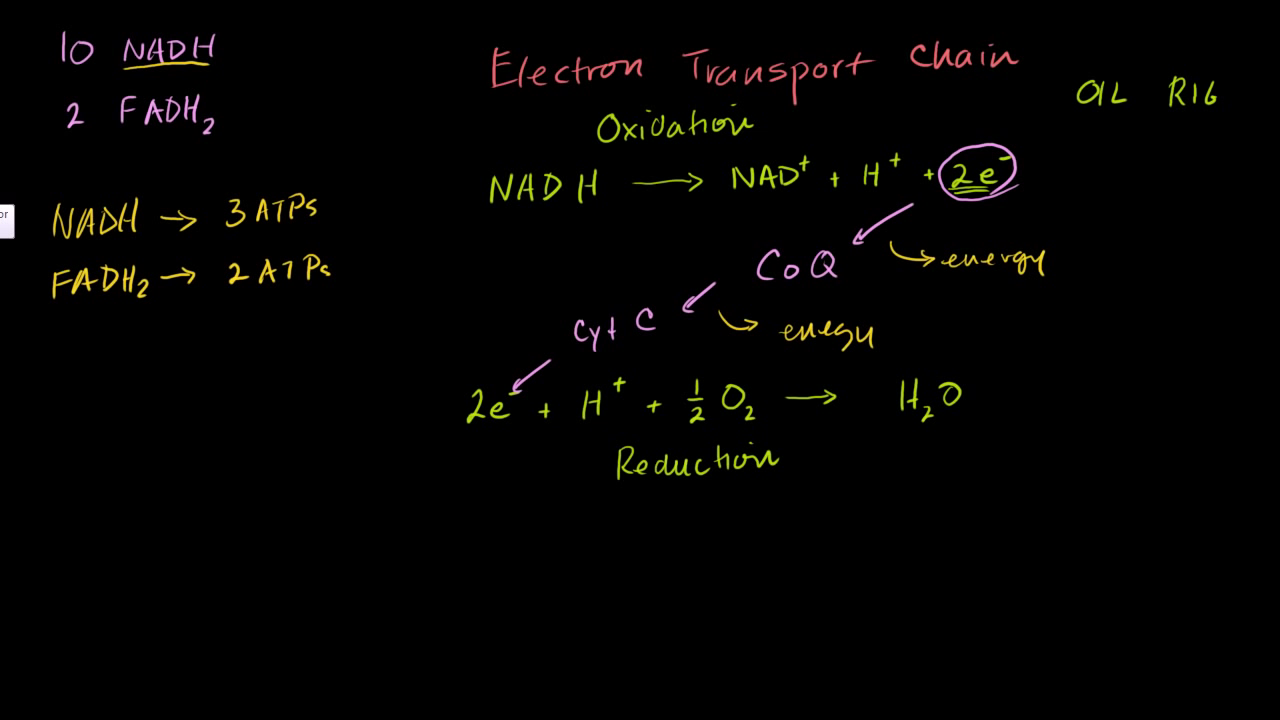 10 NADH
2 FADH₂
NADH → 3 ATPs
FADH₂ → 2 ATPs
or
Electron Transport Chain
OIL RIG
Oxidation
NADH → NAD⁺ + H⁺ + 2e⁻
CoQ
energy
Cyt C
energy
2e⁻ + H⁺ + ½ O₂ → H₂O
Reduction